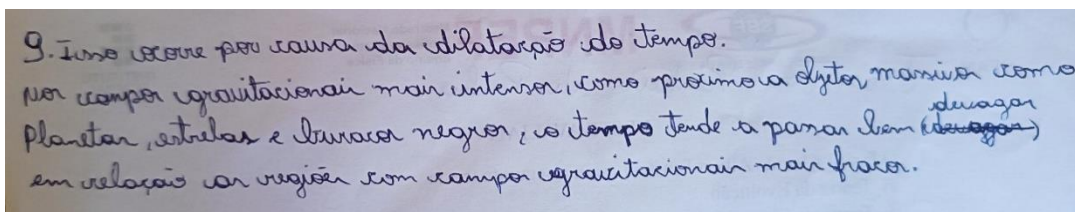 9. Isso ocorre por causa da dilatação do tempo.
Nos campos gravitacionais mais intensos, como proximo a objetos massivos como
Planetas, estrelas e buracos negros, o tempo tende a passar bem (devagar) devagar
em relação as regiões com campos gravitacionais mais fracos.